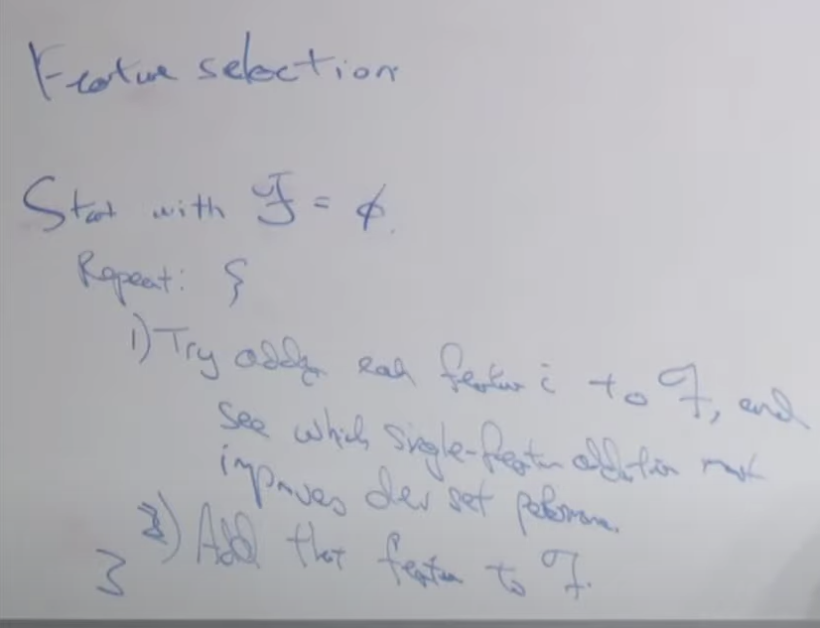 Feature selection
Start with F = ∅.
Repeat: {
1) Try adding each feature i to F, and
see which single-feature addition most
improves dev set performance.
2) Add that feature to F.
}